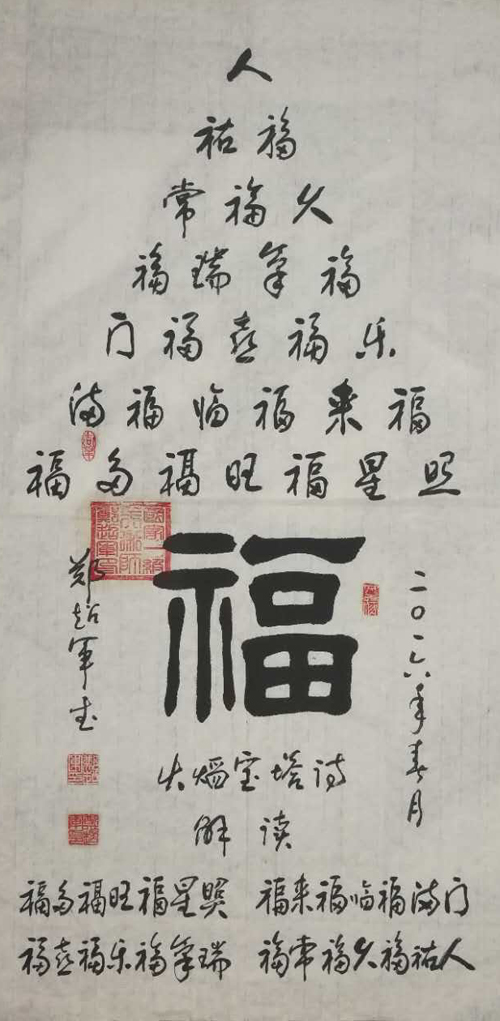 人
祐福
常福久
福瑞福
门福喜福乐
满福临福来福
福多福旺福星照
福
二〇一六年春月
郑超军书
火焰宝塔诗
解读
福多福旺福星照 福来福临福满门
福喜福乐福瑞 福常福久福祐人